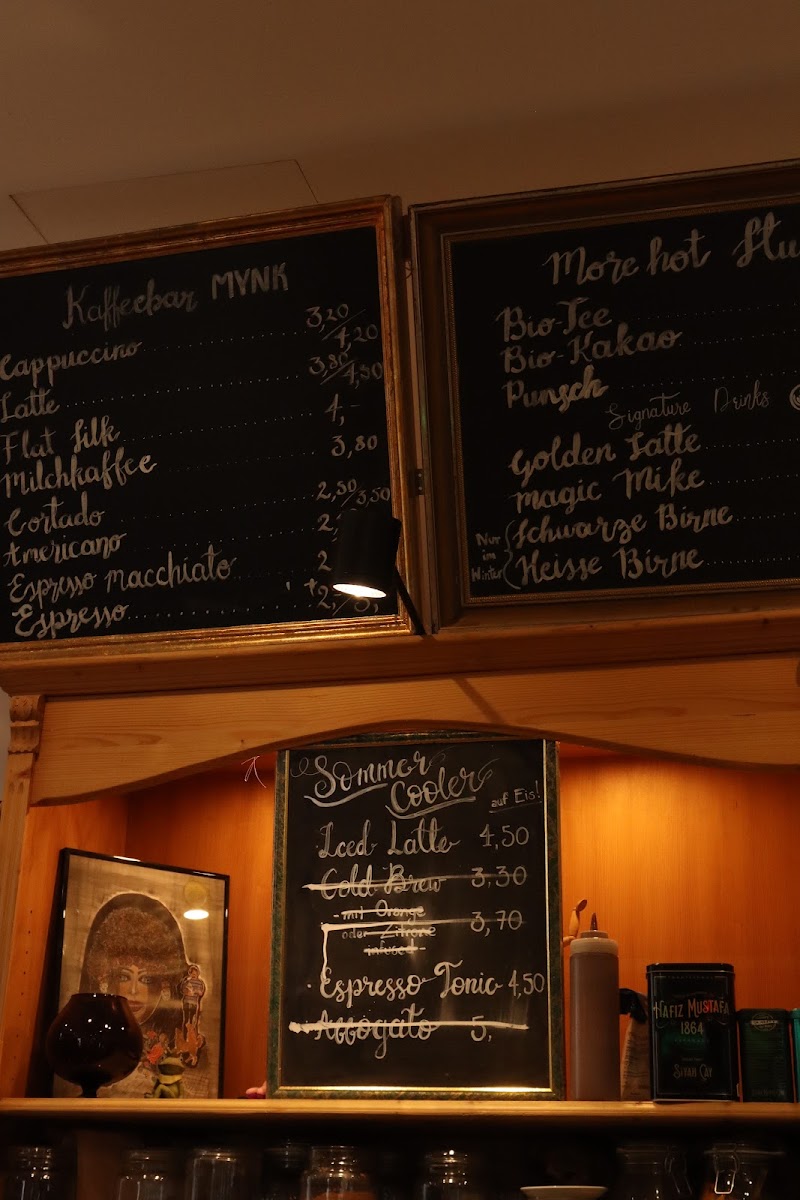 Kaffeebar MYNK
Cappuccino 3,20/4,20
Latte 3,80/4,30
Flat Silk 4,-
Milchkaffee 3,80
Cortado 2,50/3,50
Americano 2,
Espresso macchiato 2
Espresso
More hot Stu
Bio-Tee
Bio-Kakao
Punsch
Signature Drinks
Golden Latte
magic Mike
Nur im Winter
Schwarze Birne
Heisse Birne
Sommer
Cooler
auf Eis!
Iced Latte 4,50
Cold Brew 3,30
- mit Orange 3,70
oder Zitrone
infused -
Espresso Tonic 4,50
Affogato 5,
HAFIZ MUSTAFA
1864
SİYAH ÇAY